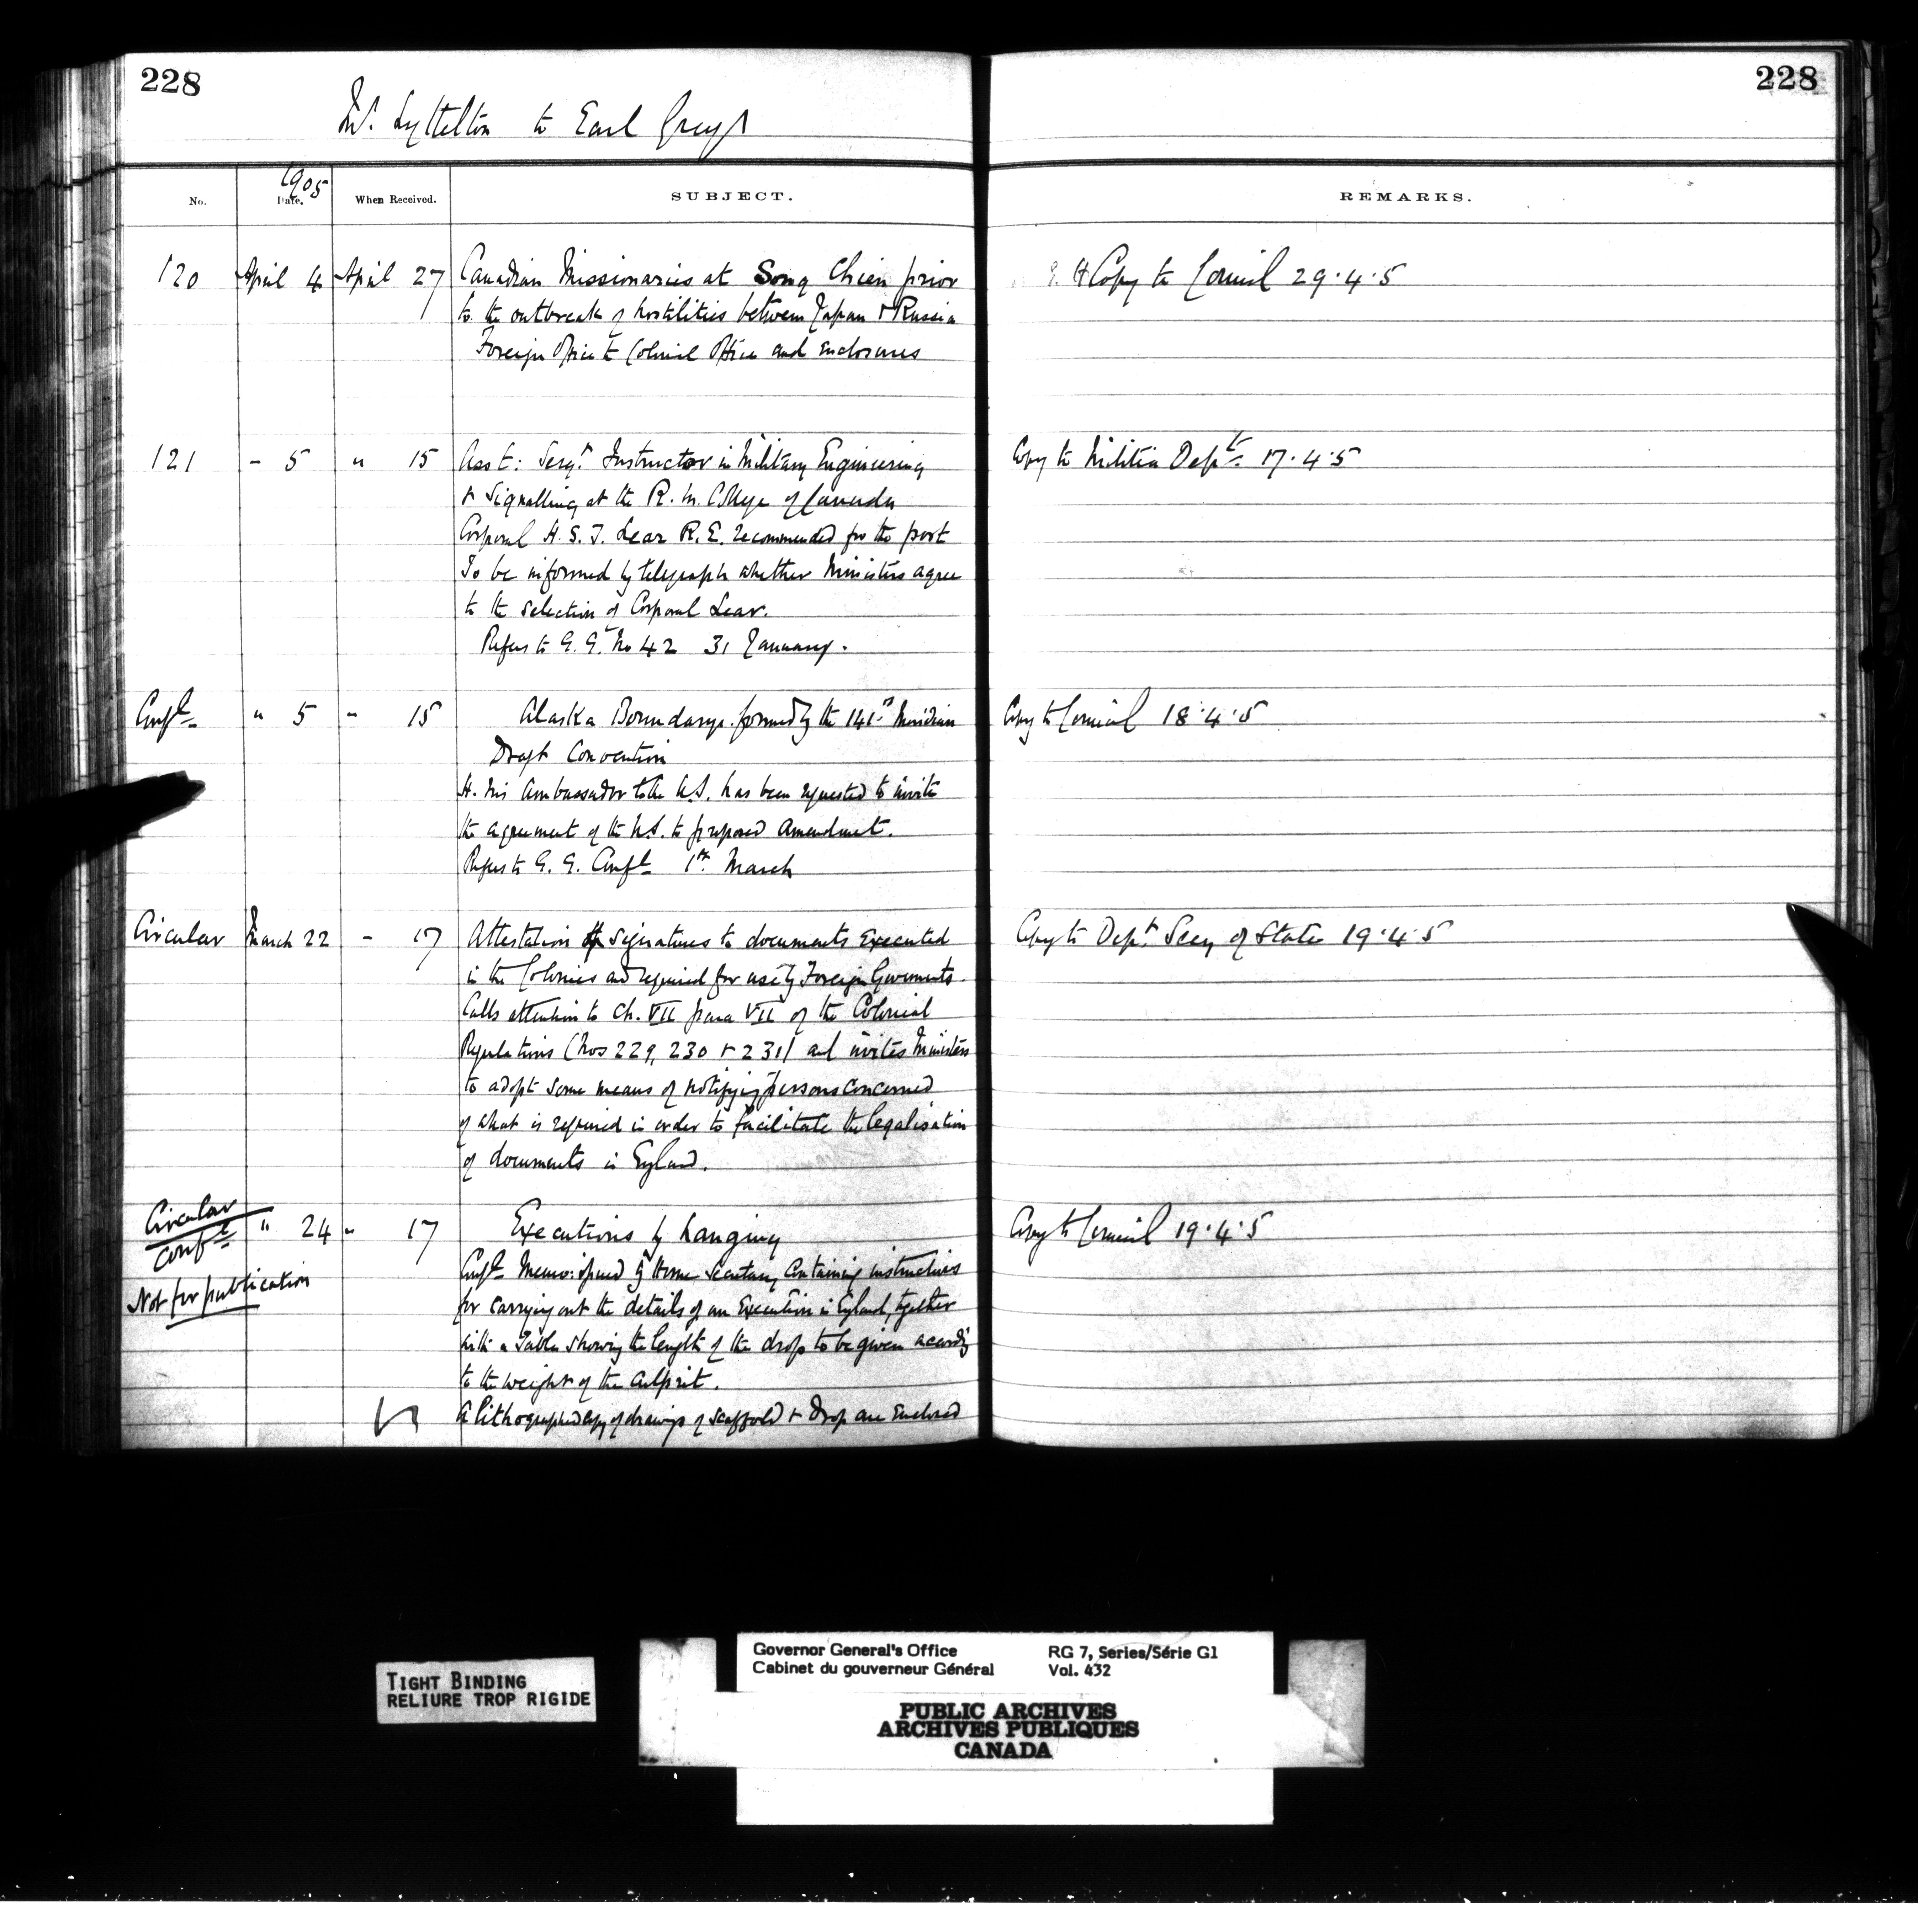 228
228
Mr. Lyttelton to Earl Grey
No.
1905
Date.
When Received.
SUBJECT.
REMARKS.
120 April 4 April 27 Canadian Missionaries at Song Chien prior
to the outbreak of hostilities between Japan & Russia
Foreign Office to Colonial Office and enclosures
Copy to Council 29.4.5
121 - 5 " 15 Asst: Sergt. Instructor in Military Engineering
& Signalling at the R. M. College of Canada
Corporal H. S. J. Lear R. E. recommended for the post
To be informed by telegraph whether Ministers agree
to the selection of Corporal Lear.
Refers to G. G. No 42 31 January.
Copy to Militia Dept. 17.4.5
Confl. " 5 " 15 Alaska Boundary formed by the 141st Meridian
Draft Convention
H. M's Ambassador to the U.S. has been requested to invite
the agreement of the U.S. to proposed amendment.
Refers to G. G. Confl 1st March
Copy to Council 18.4.5
Circular March 22 - 17 Attestation of signatures to documents executed
in the Colonies and required for use by Foreign Governments.
Calls attention to Ch. VII para VII of the Colonial
Regulations (Nos 229, 230 & 231) and invites Ministers
to adopt some means of notifying persons concerned
of what is required in order to facilitate the legalisation
of documents in England.
Copy to Dept. Secy of State 19.4.5
Circular
Confl
Not for publication
" 24 " 17 Executions by hanging
Confl Memo: issued by Home Secretary containing instructions
for carrying out the details of an Execution in England, together
with a Table showing the length of the drop to be given accordg
to the weight of the culprit.
A lithographed copy of drawings of scaffold & drop are enclosed
Copy to Council 19.4.5
TIGHT BINDING
RELIURE TROP RIGIDE
Governor General's Office
Cabinet du gouverneur Général
RG 7, Series/Série G1
Vol. 432
PUBLIC ARCHIVES
ARCHIVES PUBLIQUES
CANADA